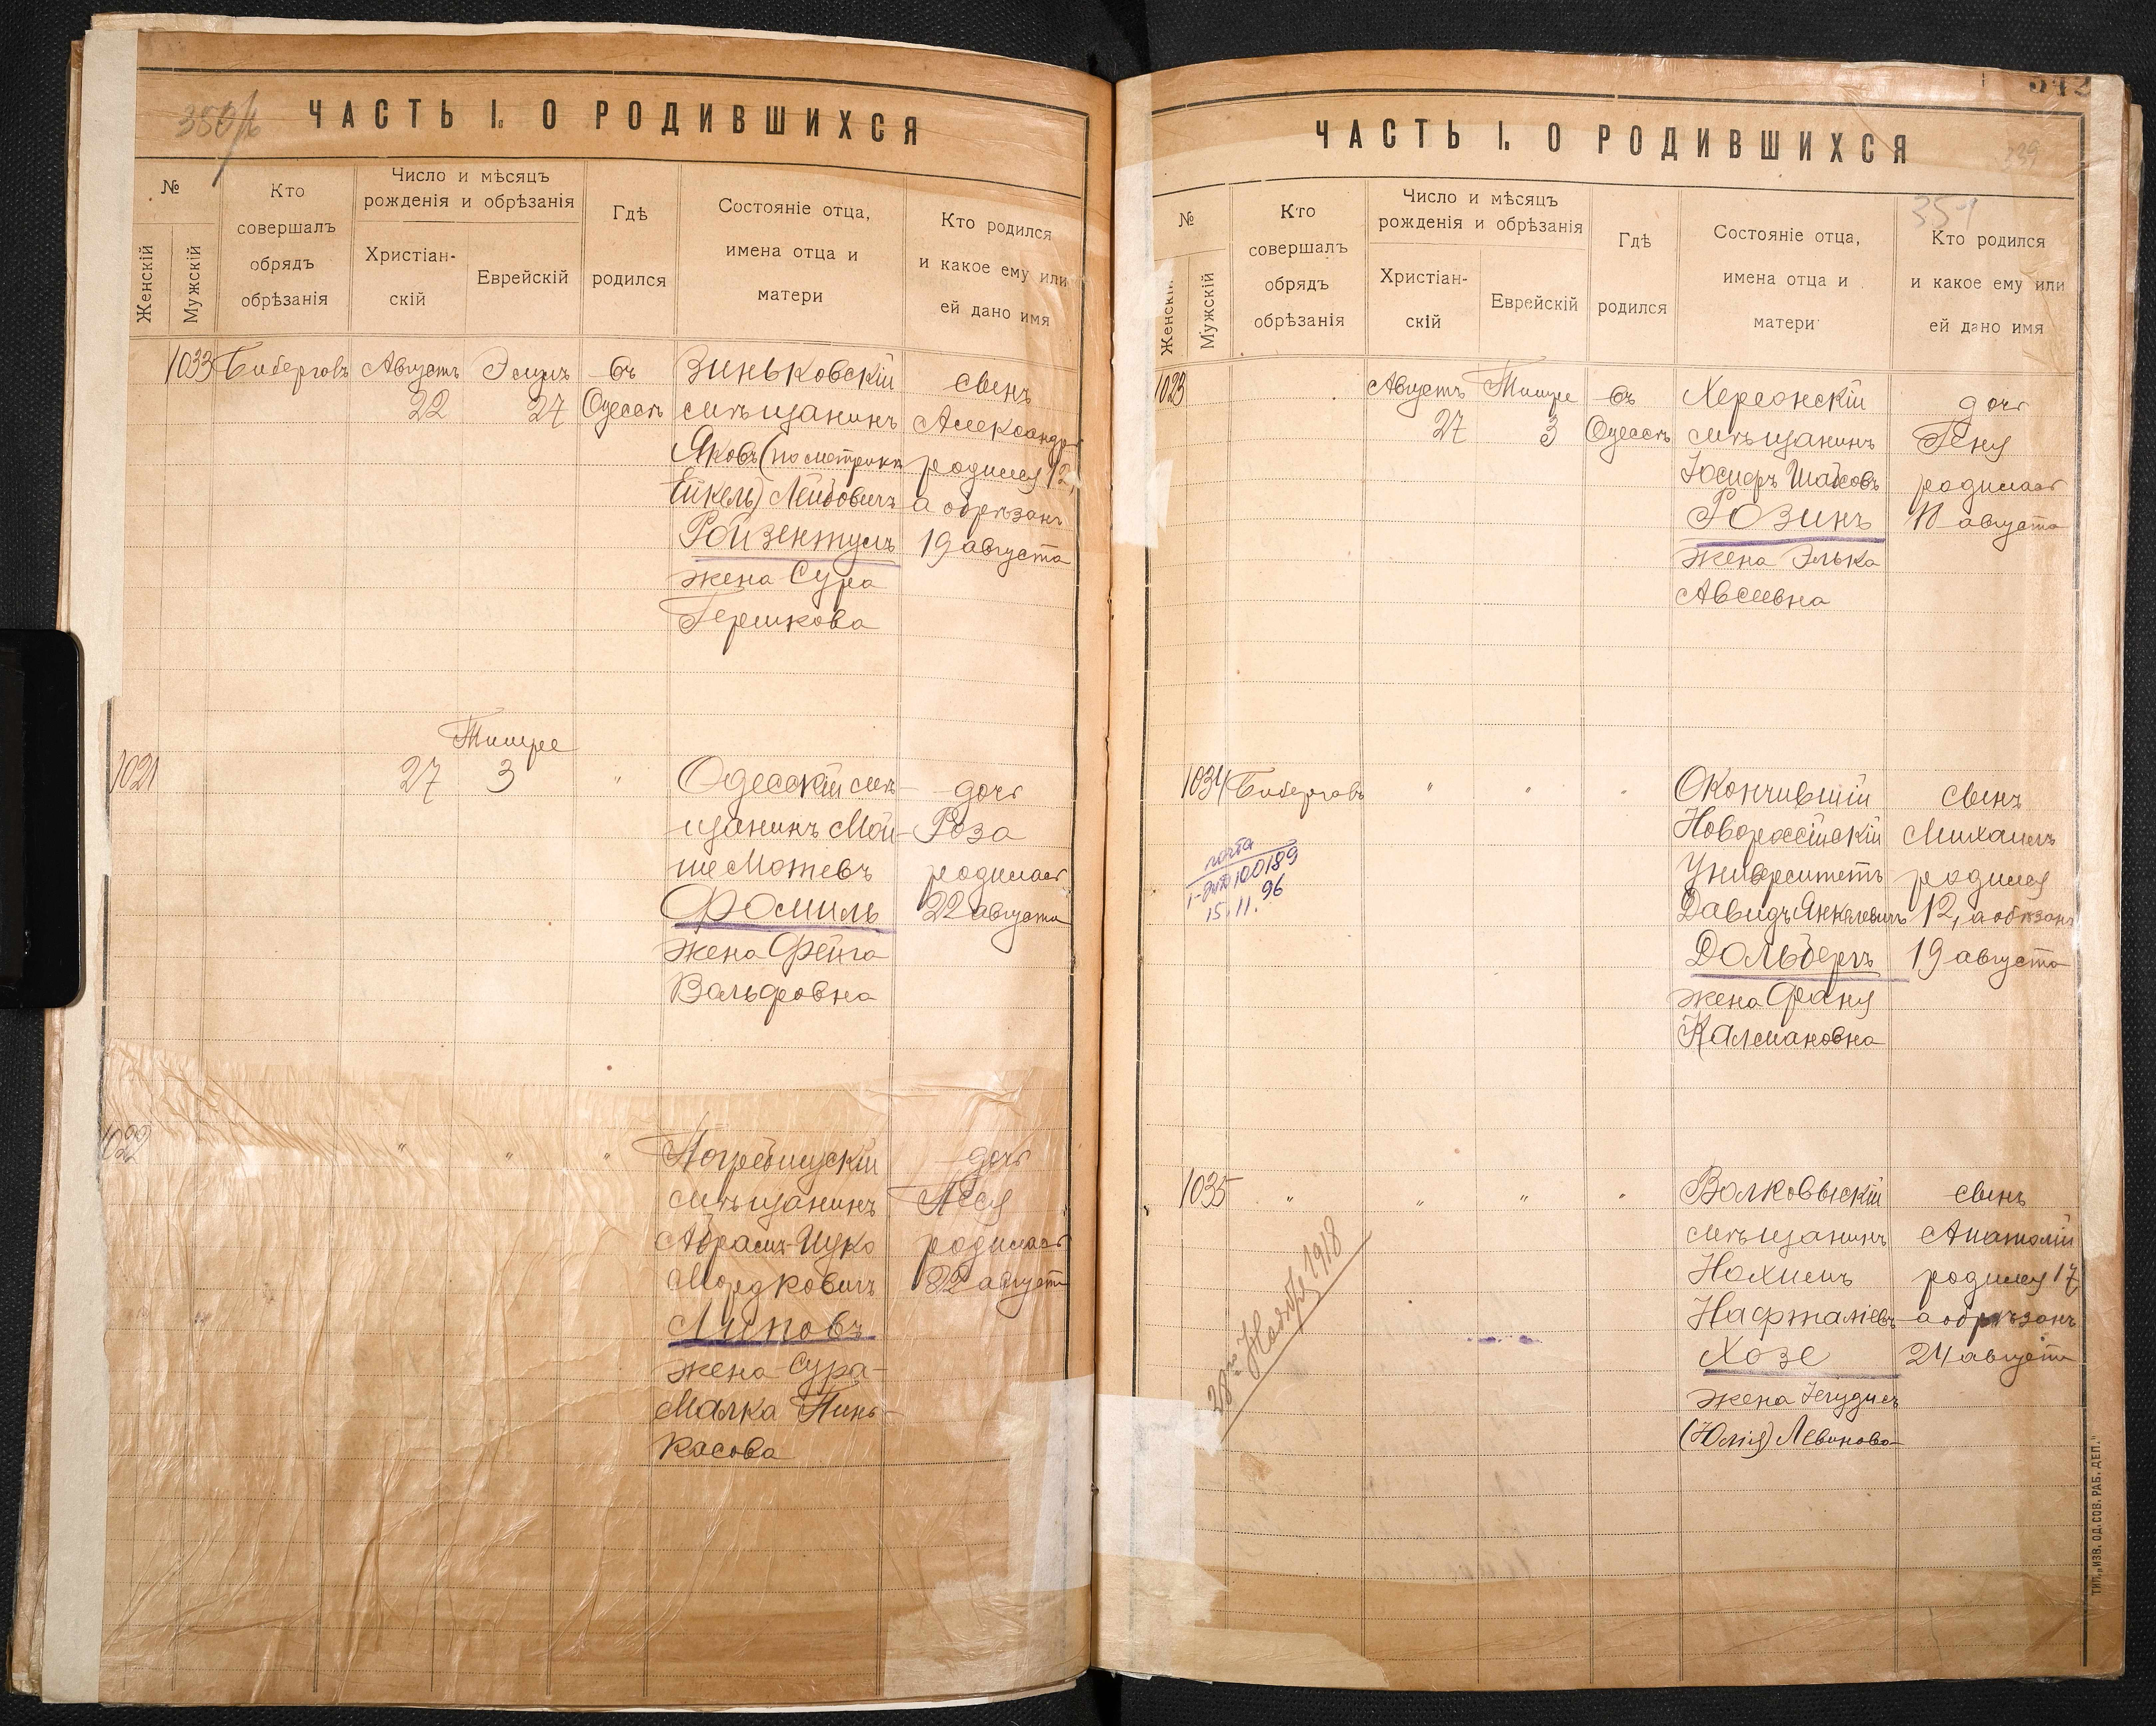 350/б
ЧАСТЬ I. О РОДИВШИХСЯ
№
Женскій
Мужскій
Кто
совершалъ
обрядъ
обрѣзанія
Число и мѣсяцъ
рожденія и обрѣзанія
Христіан-
скій
Еврейскій
Гдѣ
родился
Состояніе отца,
имена отца и
матери
Кто родился
и какое ему или
ей дано имя
1033 Биберговъ Августъ Элулъ въ Зиньковскій сынъ
22 27 Одессѣ мѣщанинъ Александръ
Яковъ (по метрикѣ родился 12,
Ейкель) Лейбовичъ а обрѣзанъ
Ройзентулъ 19 августа
жена Сура
Гершкова
Тишре
1021 27 3 " Одесскій мѣ- дочь
щанинъ Мой- Роза
ше Мотевъ родилась
Фомиль 22 августа
жена Фейга
Вольфовна
1022 " " " Погребищскій дочь
мѣщанинъ Ася
Абрамъ-Цуко родилась
Мордковичъ 22 августа
Липовъ
жена Сура-
Малка Пинь-
касова
ЧАСТЬ I. О РОДИВШИХСЯ
339
351
№
Женскій
Мужскій
Кто
совершалъ
обрядъ
обрѣзанія
Число и мѣсяцъ
рожденія и обрѣзанія
Христіан-
скій
Еврейскій
Гдѣ
родился
Состояніе отца,
имена отца и
матери
Кто родился
и какое ему или
ей дано имя
1023 Августъ Тишре въ Херсонскій дочь
27 3 Одессѣ мѣщанинъ Геня
Іосифъ Шаевъ родилась
Розинъ 18 августа
жена Элька
Авсеевна
1034 Биберговъ " " " Окончившій сынъ
Новороссійскій Михаилъ
Университетъ родился
Давидъ Янкелевичъ 12, а обрѣзанъ
Дольбергъ 19 августа
жена Фаня
Калмановна
почта
100189
15.11.96
1035 " " " " Волковыскій сынъ
мѣщанинъ Анатолій
Нохимъ родился 17
Нафталіевъ а обрѣзанъ
Хозе 24 августа
жена Іегудисъ
(Юлія) Левинова
28го Ноября 1918
ТИП. „ИЗВ. ОД. СОВ. РАБ. ДЕП."